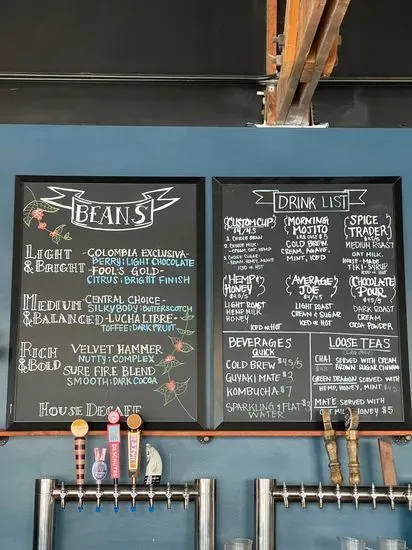 BEANS
LIGHT & BRIGHT
-COLOMBIA EXCLUSIVA-
BERRY: LIGHT CHOCOLATE
FOOL'S GOLD-
CITRUS: BRIGHT FINISH
MEDIUM & BALANCED
CENTRAL CHOICE-
SILKY BODY: BUTTERSCOTCH
-LUCHA LIBRE-
TOFFEE: DARK FRUIT
RICH & BOLD
VELVET HAMMER
NUTTY: COMPLEX
SURE FIRE BLEND
SMOOTH: DARK COCOA
HOUSE DECAFS
DRINK LIST
CUSTOM CUP
1. CHOOSE BEAN
2. CHOOSE MILK
- CREAM, OAT, HEMP
3. CHOOSE SUGAR
- BROWN, HONEY, AGAVE
ICED OR HOT
MORNING MOJITO
COLD BREW,
CREAM, AGAVE,
MINT, ICED
SPICE TRADER
MEDIUM ROAST
OAT MILK,
HOUSE-MADE
TIKI-SYRUP
ICED OR HOT
HEMP & HONEY
LIGHT ROAST
HEMP MILK
HONEY
ICED OR HOT
AVERAGE JOE
LIGHT ROAST
CREAM & SUGAR
ICED OR HOT
CHOCOLATE POUR
DARK ROAST
CREAM
COCOA POWDER
BEVERAGES
QUICK
COLD BREW $4.5/5
GUYAKI MATE $3
KOMBUCHA $7
SPARKLING & FLAT
WATER
LOOSE TEAS
CHAI SERVED WITH CREAM
BROWN SUGAR, CINNAMON
GREEN DRAGON SERVED WITH
HEMP, HONEY, MINT
MATE SERVED WITH
MILK HONEY $5
DESCHUTES